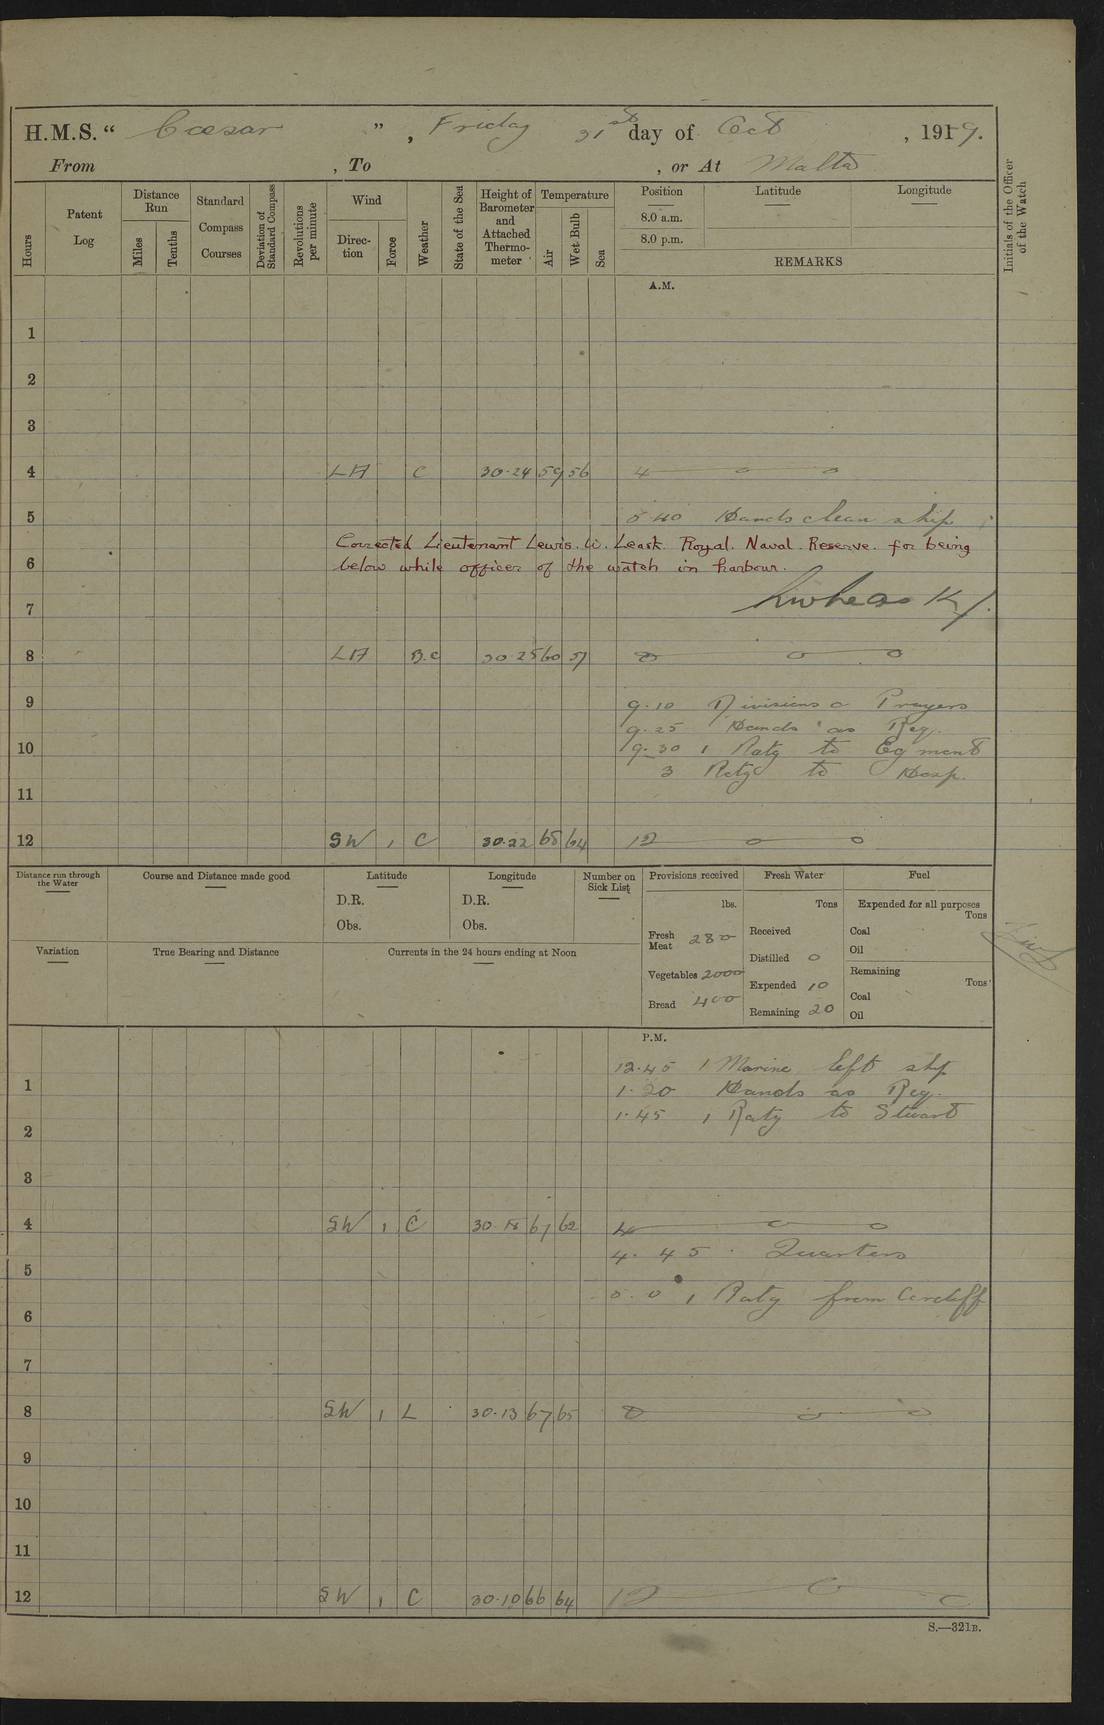 H.M.S. “ Cæsar ” , Friday 31st day of Oct , 1919.
From , To , or At Malta
Hours
Patent Log
Distance Run
Miles
Tenths
Standard Compass Courses
Deviation of Standard Compass
Revolutions per minute
Wind
Direc-tion
Force
Weather
State of the Sea
Height of Barometer and Attached Thermo-meter
Temperature
Air
Wet Bulb
Sea
Position Latitude Longitude
8.0 a.m.
8.0 p.m.
REMARKS
Initials of the Officer of the Watch
A.M.
1
2
3
4 C 30.24 59 56 4
5 5.40 Hands clean ship
Corrected Lieutenant Lewis. W. Leask Royal. Naval. Reserve. for being
6 below while officer of the watch in harbour.
7
8 B.C 30.25 60 57 8
9 9.10 Divisions & Prayers
9.25 Hands as Req.
10 9.30 1 Ratg to Egmont
3 Ratgs to Hosp.
11
12 SW 1 C 30.22 68 64 12
Distance run through the Water
Course and Distance made good
Latitude
D.R.
Obs.
Longitude
D.R.
Obs.
Number on Sick List
Provisions received
lbs.
Fresh Meat 280
Vegetables 2000
Bread 400
Fresh Water
Tons
Received
Distilled 0
Expended 10
Remaining 20
Fuel
Expended for all purposes
Tons
Coal
Oil
Remaining
Tons
Coal
Oil
Variation
True Bearing and Distance
Currents in the 24 hours ending at Noon
P.M.
12.45 1 Marine left ship
1 1.20 Hands as Req.
1.45 1 Ratg to Stuart
2
3
4 SW 1 C 30.18 67 62 4
4.45 Quarters
5
5.0 1 Ratg from Cardiff
6
7
8 SW 1 30.13 67 65 8
9
10
11
12 SW 1 C 30.10 66 64 12
S.—321B.